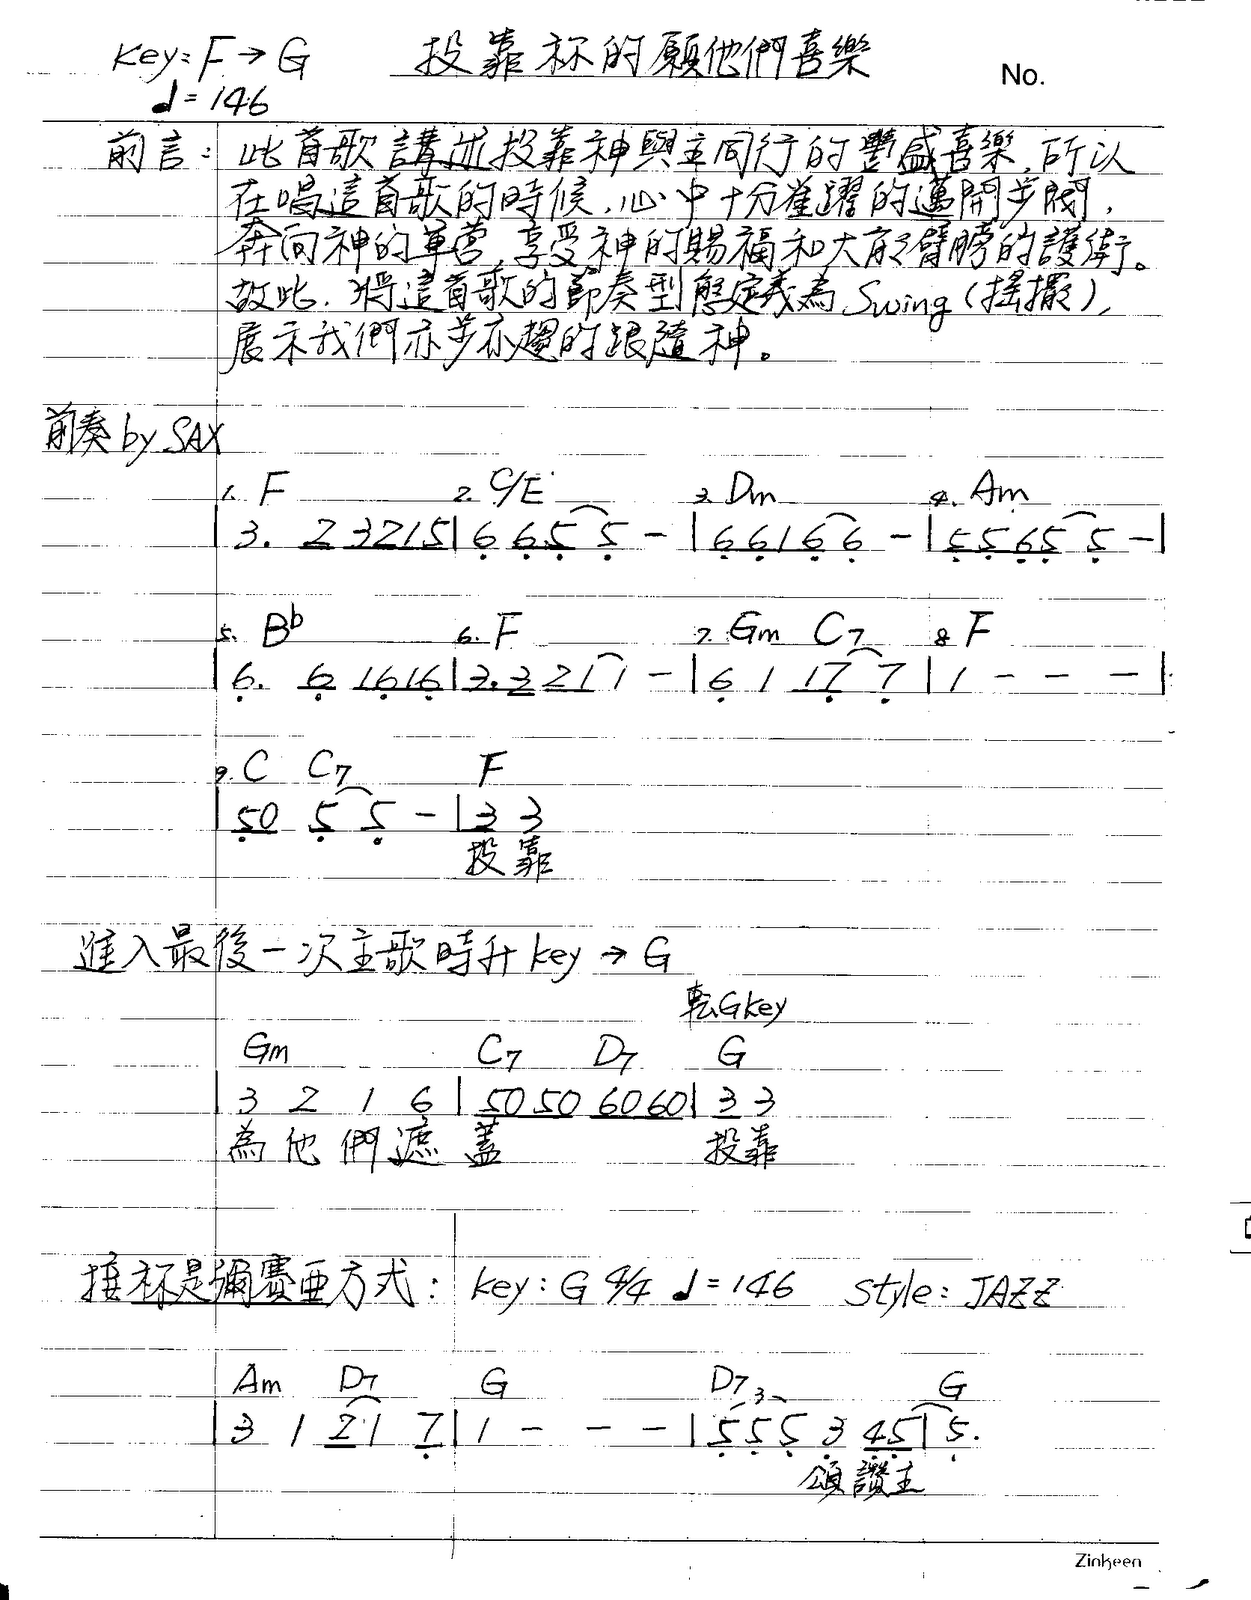 Key: F → G 投靠祢的願他們喜樂 No.
♩= 146
前言: 此首歌講述投靠神與主同行的豐盛喜樂,所以
在唱這首歌的時候,心中十分雀躍的邁開步闊,
奔向神的軍營,享受神的賜福和大能臂膀的護衛。
故此,將這首歌的節奏型態定義為 Swing (搖擺),
展示我們亦步亦趨的跟隨神。
前奏 by SAX
1. F 2. C/E 3. Dm 4. Am
| 3. 2 3215 | 6 6 5 5 - | 6 6 1 6 6 - | 5 5 6 5 5 - |
5. Bb 6. F 7. Gm C7 8 F
| 6. 6 1616 | 3.3 2 1 1 - | 6 1 17 7 | 1 - - - |
9. C C7 F
| 50 5 5 - | 3 3
投靠
進入最後一次主歌時升 key → G
転Gkey
Gm C7 D7 G
| 3 2 1 6 | 50 50 60 60 | 3 3
為他們遮蓋 投靠
接祢是彌賽亜方式: key: G 4/4 ♩=146 style: JAZZ
Am D7 G D7 3 G
| 3 1 2 1 7 | 1 - - - | 5 5 5 3 45 | 5.
頌讚主
Zinkeen